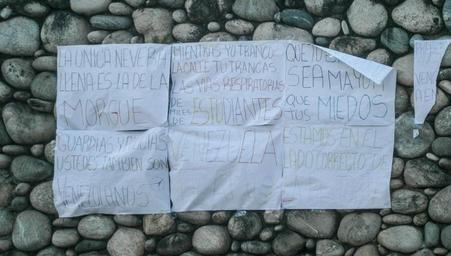 LA UNICA NEVERA
LLENA ES LA DE LA
MORGUE
MIENTRAS YO TRANCO
LA CALLE TU TRANCAS
LAS VIAS RESPIRATORIAS
DE MILES DE ESTUDIANTES
QUE TU
SEA MAYOR
QUE TUS MIEDOS
GUARDIAS Y POLICIAS
USTEDES TAMBIEN SON
VENEZOLANOS
VENEZUELA
ESTAMOS EN EL
LADO CORRECTO DE